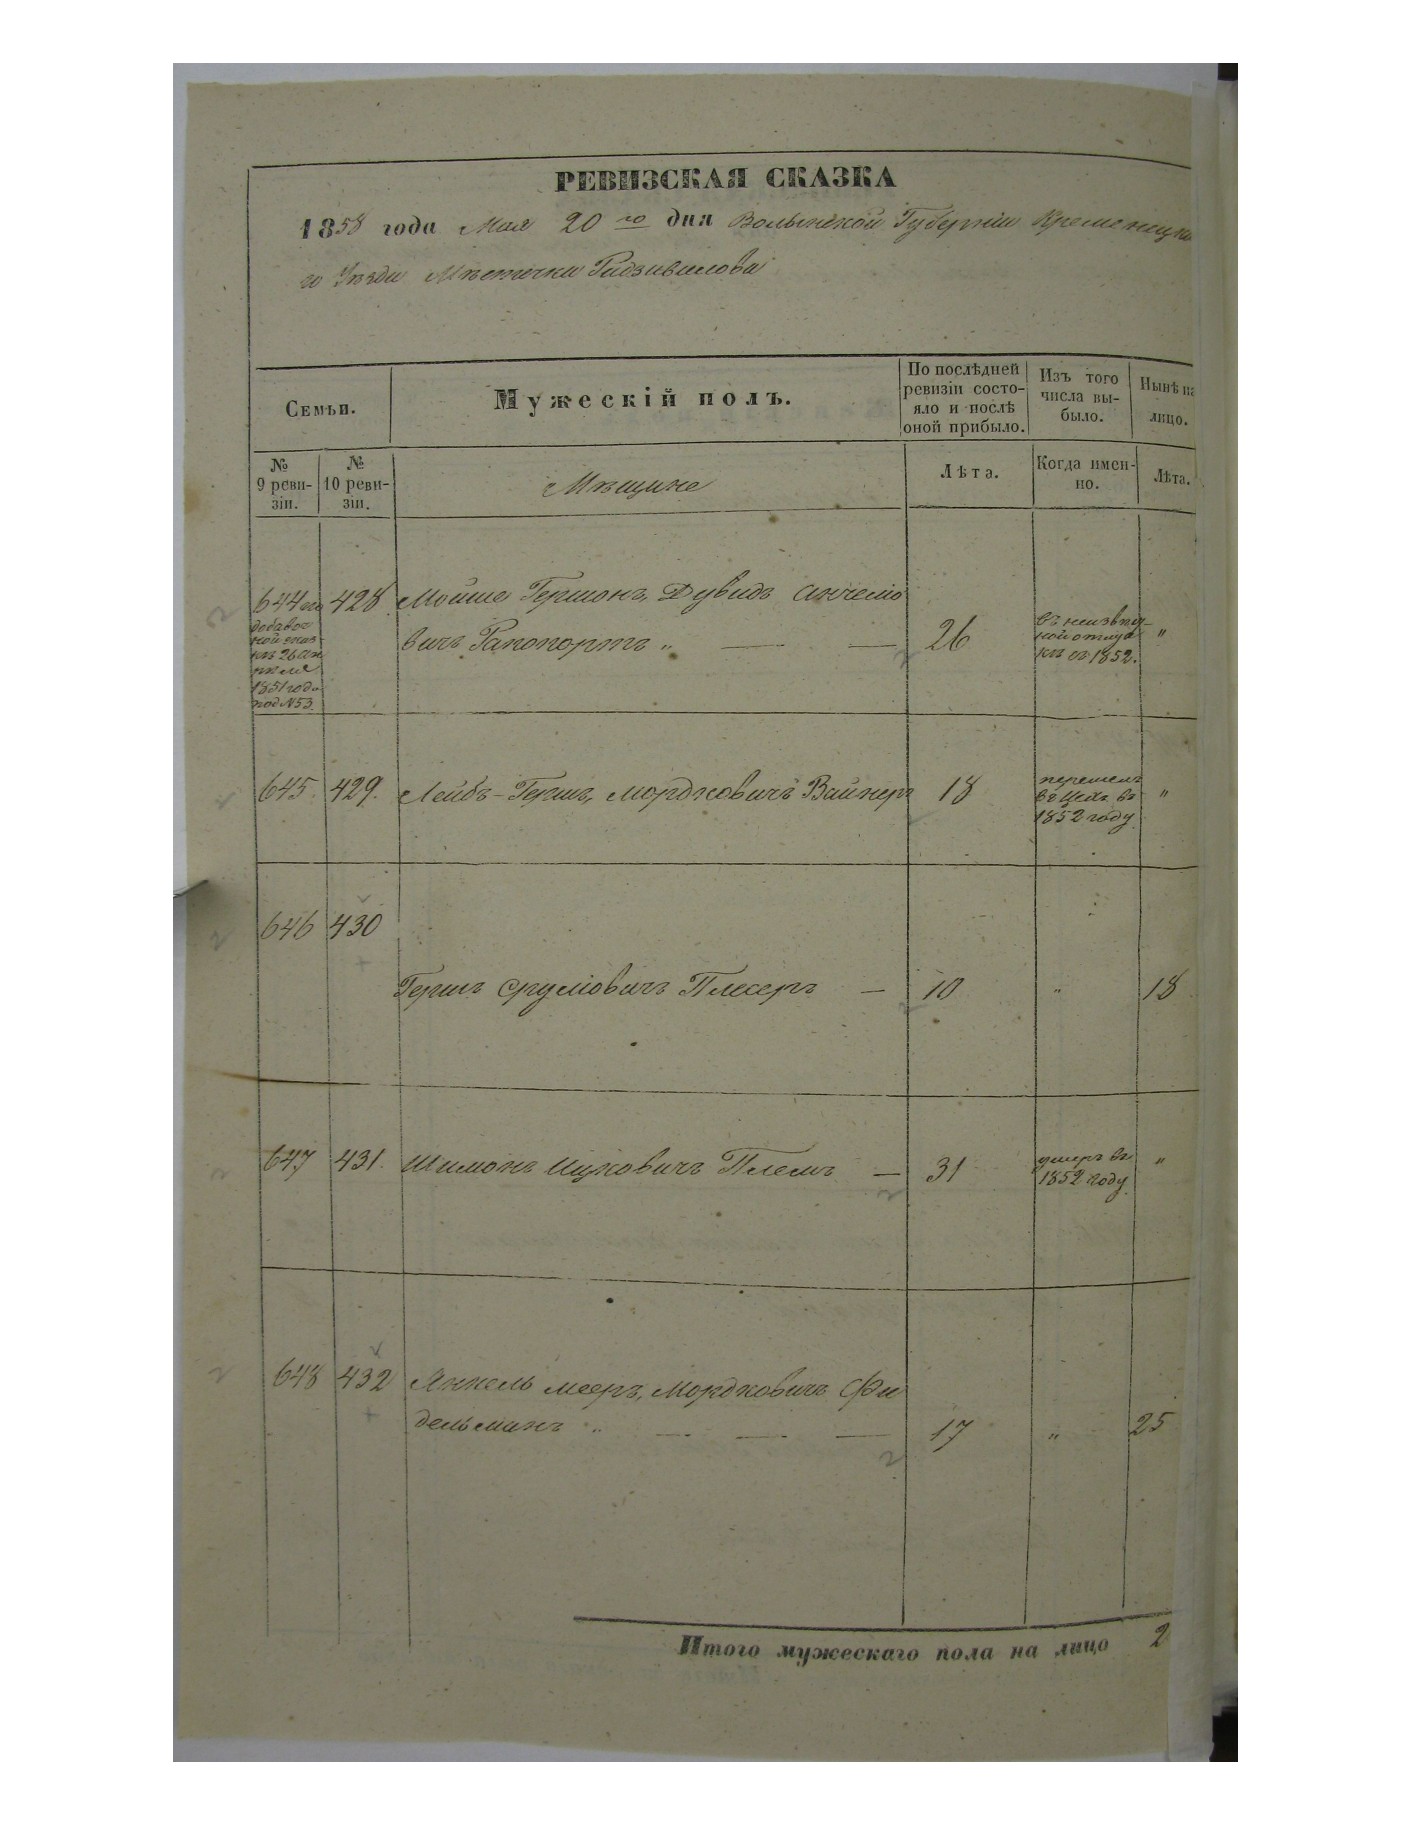 РЕВИЗСКАЯ СКАЗКА
1858 года Мая 20 го дня Волынской Губерніи Кременецка
го Уѣзда Мѣстечка Радзивилова
Семьи.
Мужескій полъ.
По послѣдней
ревизіи состо-
яло и послѣ
оной прибыло.
Изъ того
числа вы-
было.
Нынѣ на
лицо.
№
9 реви-
зіи.
№
10 реви-
зіи.
Мѣщане
Лѣта.
Когда имен-
но.
Лѣта.
644 по
добавоч
ной сказ
кѣ 26 Ап
рѣля
1851 года
под №53.
428
Мойше Гершонъ, Дувидъ Анчеліо
вичъ Рапопортъ „ — —
26
въ неизвѣст-
ной отлуч
кѣ съ 1852.
„
645.
429.
Лейбъ-Гершъ, Мордковичъ Вайнеръ
18
перешелъ
въ Цехъ въ
1852 году.
„
646
430
Гершъ Сруліовичъ Плесеръ —
10
„
18
647
431.
Шимонъ Ицковичъ Плесъ —
31
умеръ въ
1852 году.
„
648
432
Янкель Мееръ, Мордковичъ Фи
дельманъ „ — — —
17
„
25
Итого мужескаго пола на лицо
2